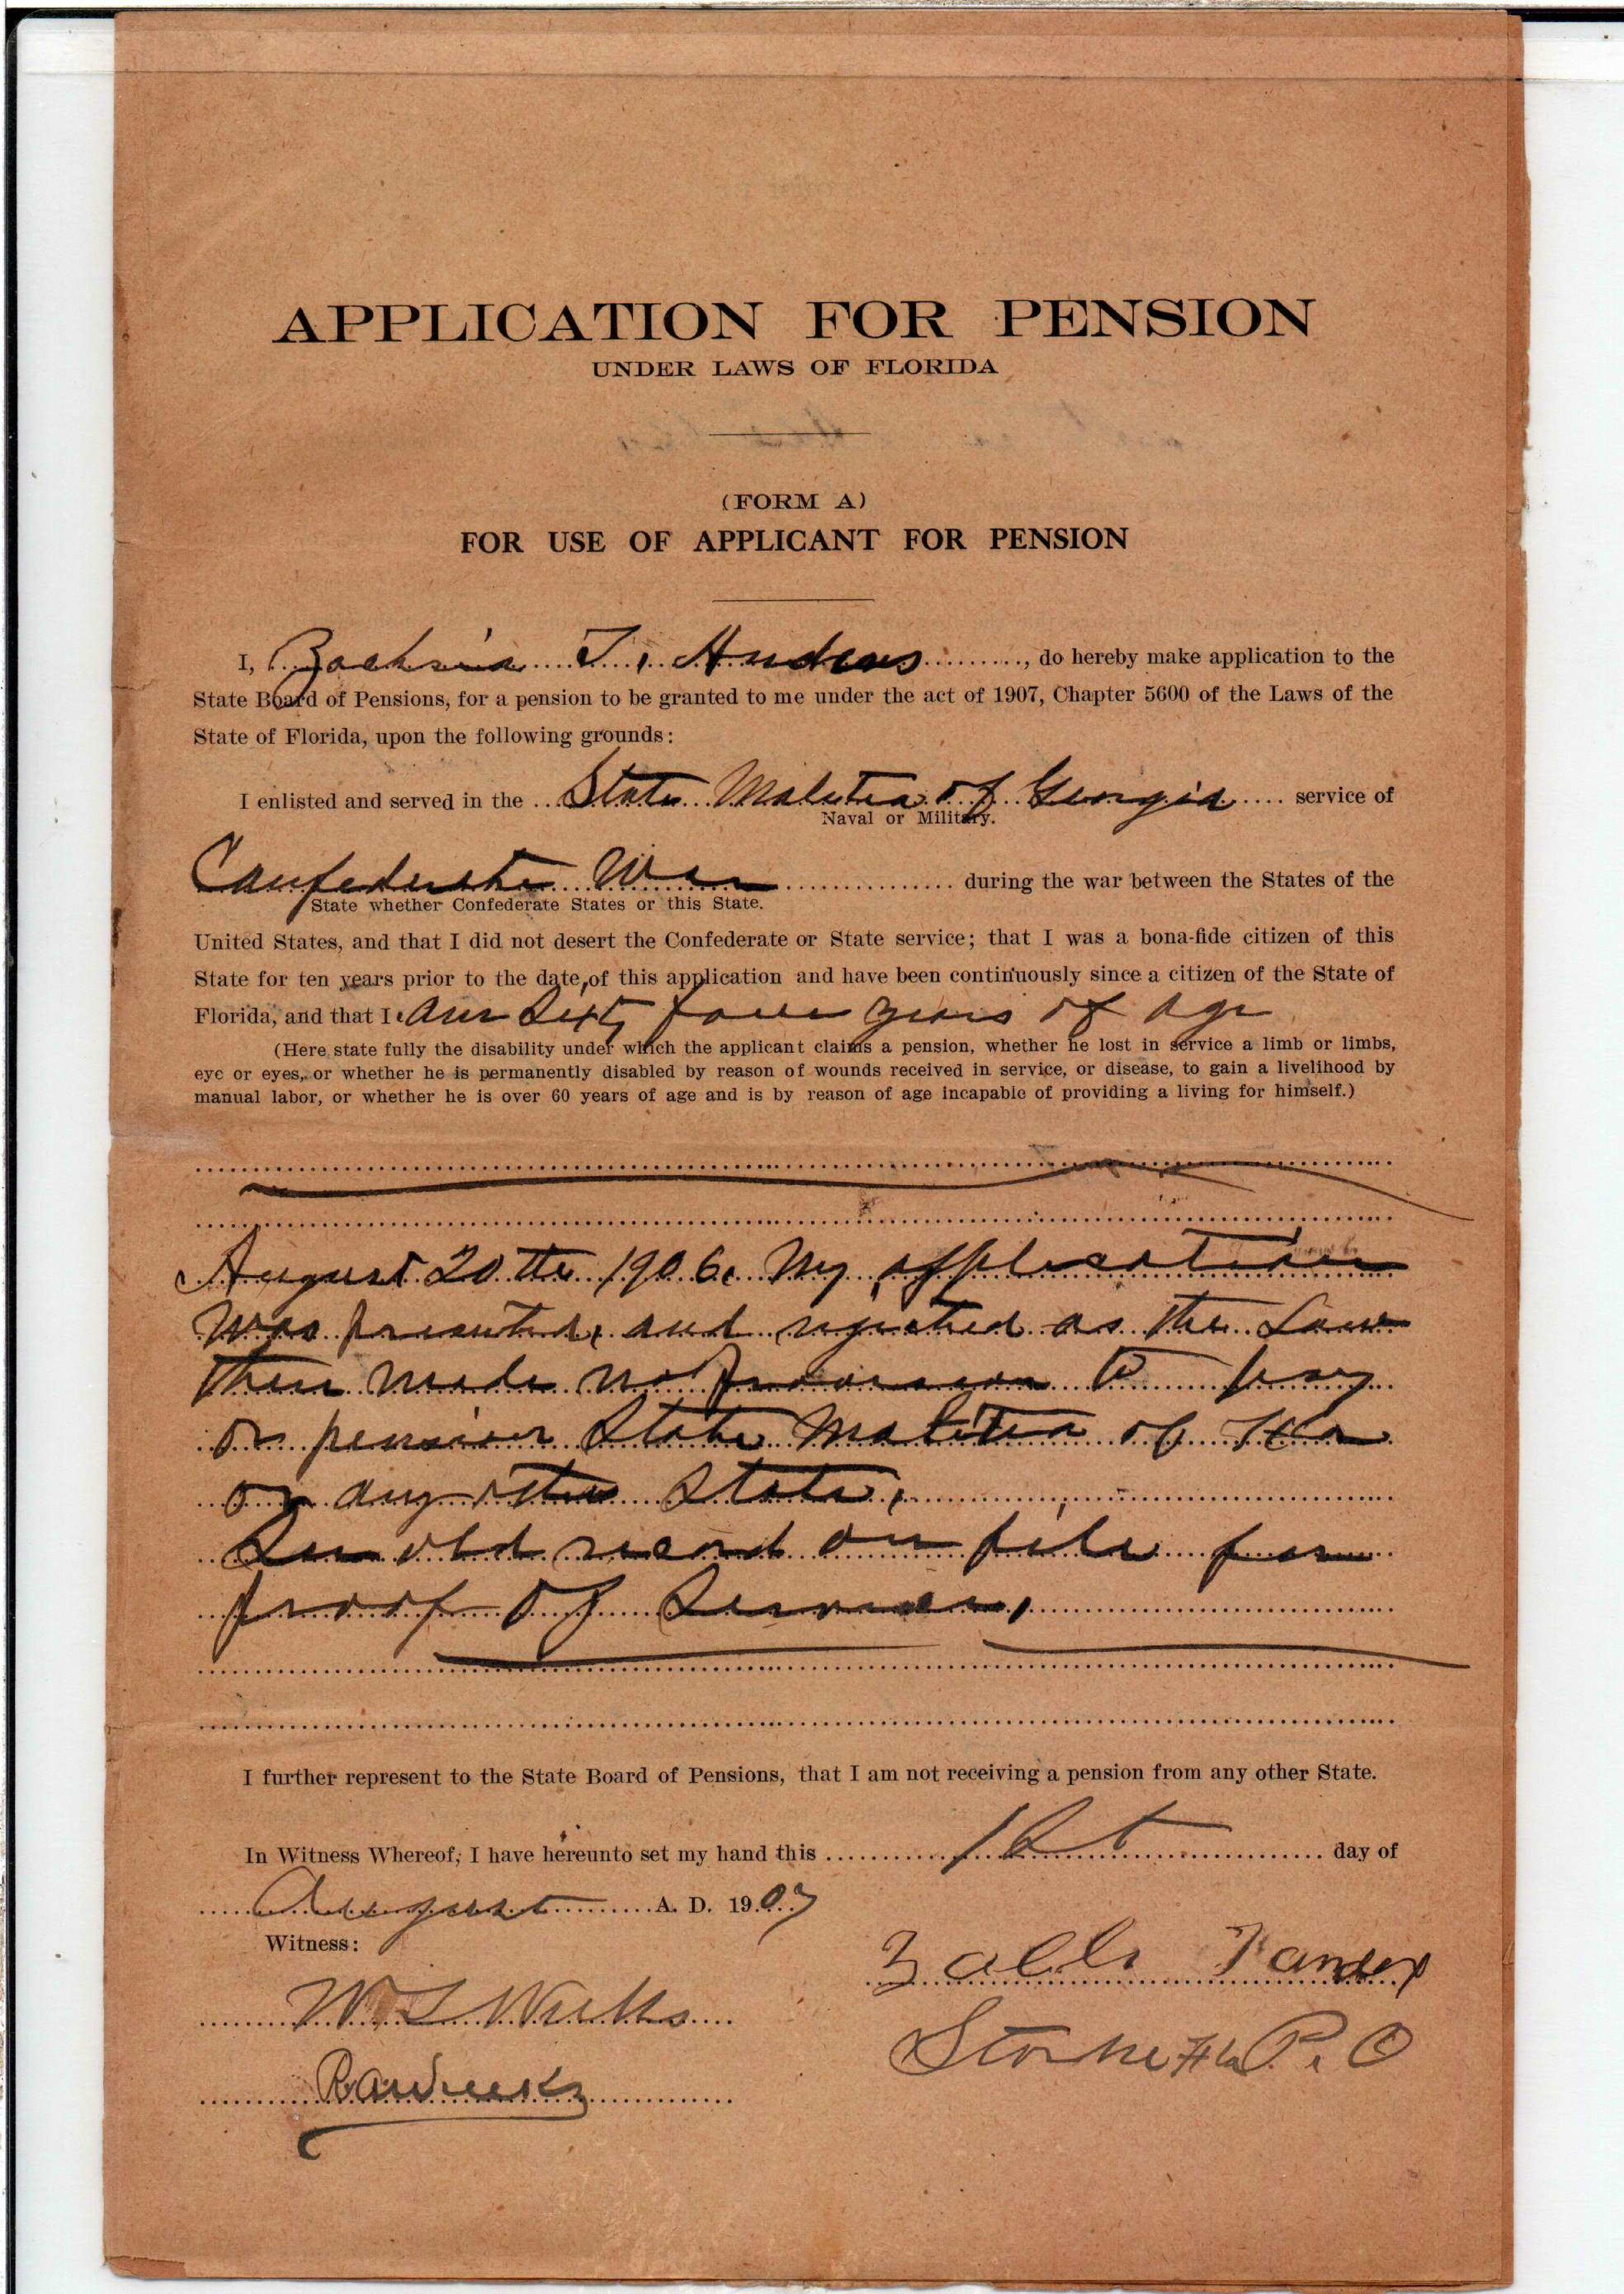 APPLICATION FOR PENSION
UNDER LAWS OF FLORIDA
(FORM A)
FOR USE OF APPLICANT FOR PENSION
I, Zachria T. Anders, do hereby make application to the
State Board of Pensions, for a pension to be granted to me under the act of 1907, Chapter 5600 of the Laws of the
State of Florida, upon the following grounds:
I enlisted and served in the State Malitia of Georgia service of
Naval or Military.
Confederate War during the war between the States of the
State whether Confederate States or this State.
United States, and that I did not desert the Confederate or State service; that I was a bona-fide citizen of this
State for ten years prior to the date of this application and have been continuously since a citizen of the State of
Florida, and that I am Sixty four years of age
(Here state fully the disability under which the applicant claims a pension, whether he lost in service a limb or limbs,
eye or eyes, or whether he is permanently disabled by reason of wounds received in service, or disease, to gain a livelihood by
manual labor, or whether he is over 60 years of age and is by reason of age incapable of providing a living for himself.)
August 20th 1906. My application
was presented, and rejected as the Law
then made no provision to pay
or pension State Malitia of
or any other State.
See old record on file for
proof of Service.
I further represent to the State Board of Pensions, that I am not receiving a pension from any other State.
In Witness Whereof, I have hereunto set my hand this 1st day of
August A. D. 1907
Witness:
W
R
P. O